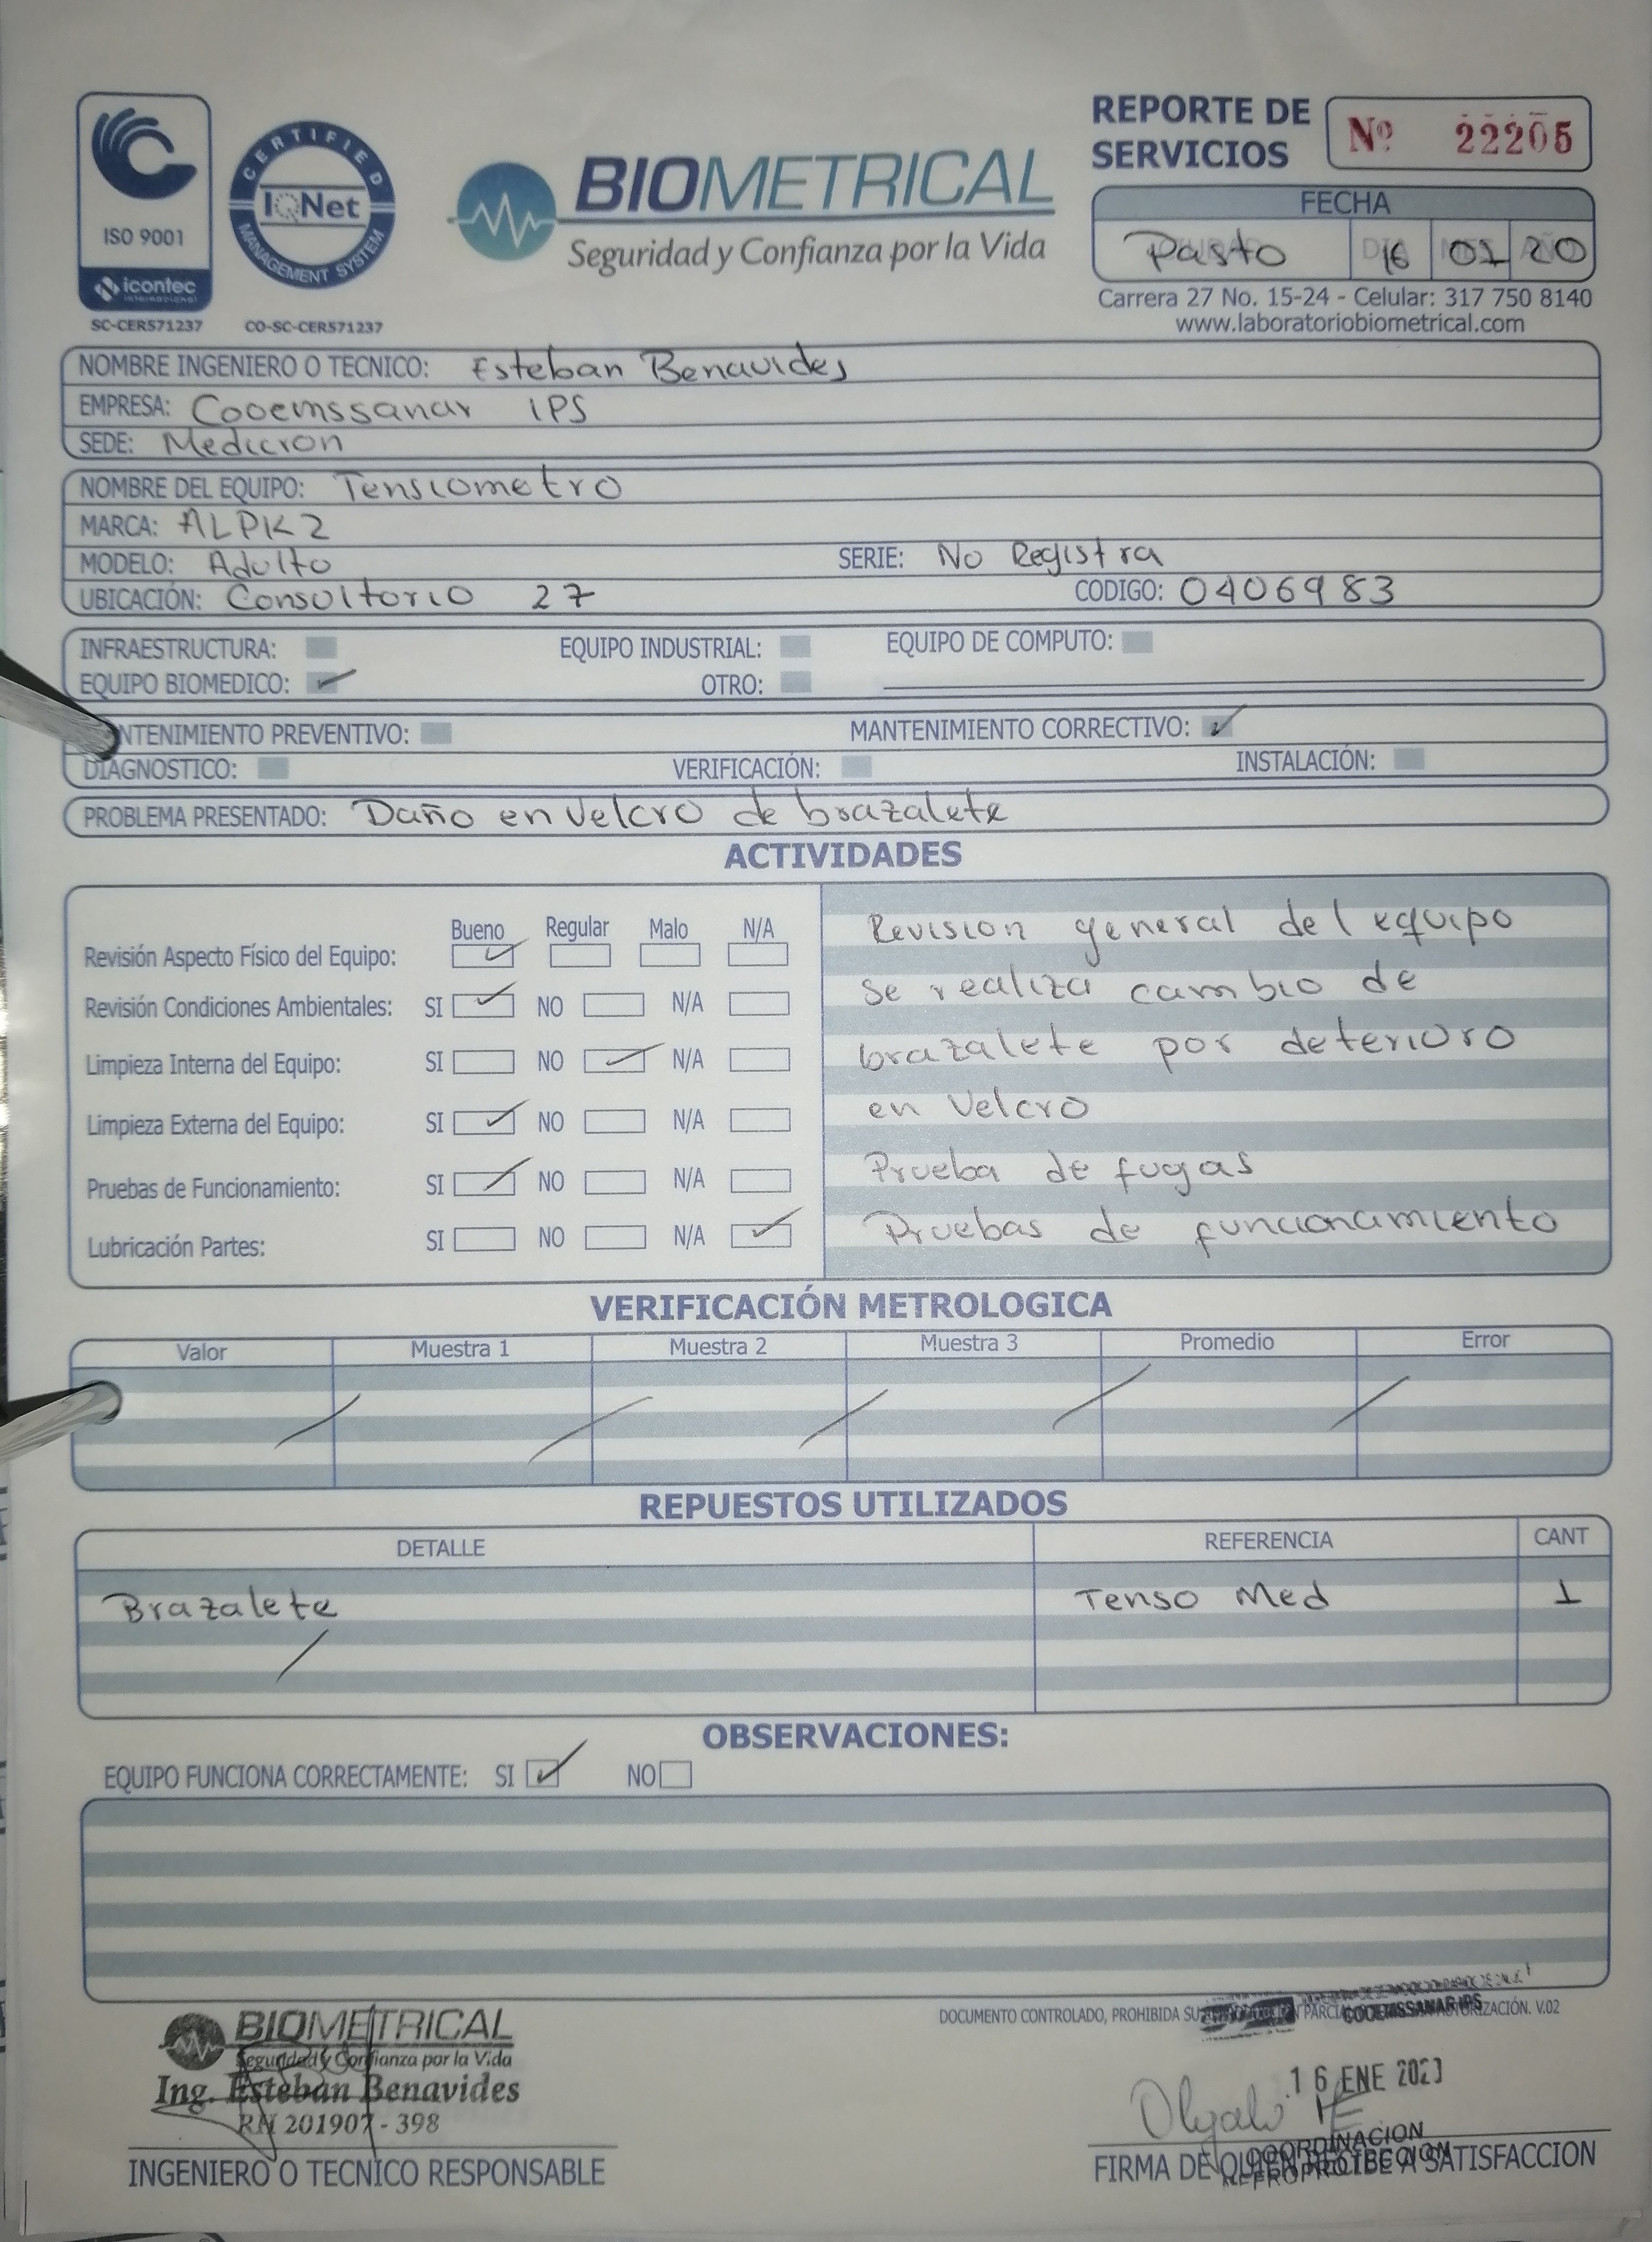 ISO 9001
icontec
internacional
SC-CER571237
CERTIFIED
IQNet
MANAGEMENT SYSTEM
CO-SC-CER571237
BIOMETRICAL
Seguridad y Confianza por la Vida
REPORTE DE
SERVICIOS
Nº 22205
FECHA
Pasto 16 01 20
Carrera 27 No. 15-24 - Celular: 317 750 8140
www.laboratoriobiometrical.com
NOMBRE INGENIERO O TECNICO: Esteban Benavides
EMPRESA: Cooemssanar IPS
SEDE: Medicron
NOMBRE DEL EQUIPO: Tensiometro
MARCA: ALPK2
MODELO: Adulto SERIE: No Registra
UBICACIÓN: Consultorio 27 CODIGO: 0406983
INFRAESTRUCTURA: EQUIPO INDUSTRIAL: EQUIPO DE COMPUTO:
EQUIPO BIOMEDICO: ✓ OTRO:
NTENIMIENTO PREVENTIVO: MANTENIMIENTO CORRECTIVO: ✓
DIAGNOSTICO: VERIFICACIÓN: INSTALACIÓN:
PROBLEMA PRESENTADO: Daño en Velcro de brazalete
ACTIVIDADES
Bueno Regular Malo N/A
Revisión Aspecto Físico del Equipo: ✓
Revisión Condiciones Ambientales: SI ✓ NO N/A
Limpieza Interna del Equipo: SI NO ✓ N/A
Limpieza Externa del Equipo: SI ✓ NO N/A
Pruebas de Funcionamiento: SI ✓ NO N/A
Lubricación Partes: SI NO N/A ✓
Revision general del equipo
se realiza cambio de
brazalete por deterioro
en Velcro
Prueba de fugas
Pruebas de funcionamiento
VERIFICACIÓN METROLOGICA
Valor Muestra 1 Muestra 2 Muestra 3 Promedio Error
REPUESTOS UTILIZADOS
DETALLE REFERENCIA CANT
Brazalete Tenso Med 1
OBSERVACIONES:
EQUIPO FUNCIONA CORRECTAMENTE: SI ✓ NO
DOCUMENTO CONTROLADO, PROHIBIDA SU
COOEMSSANAR IPS
BIOMETRICAL
Seguridad y Confianza por la Vida
Ing. Esteban Benavides
RH 201907 - 398
INGENIERO O TECNICO RESPONSABLE
16 ENE 2020
COORDINACION
FIRMA DE QUIEN RECIBE A SATISFACCION